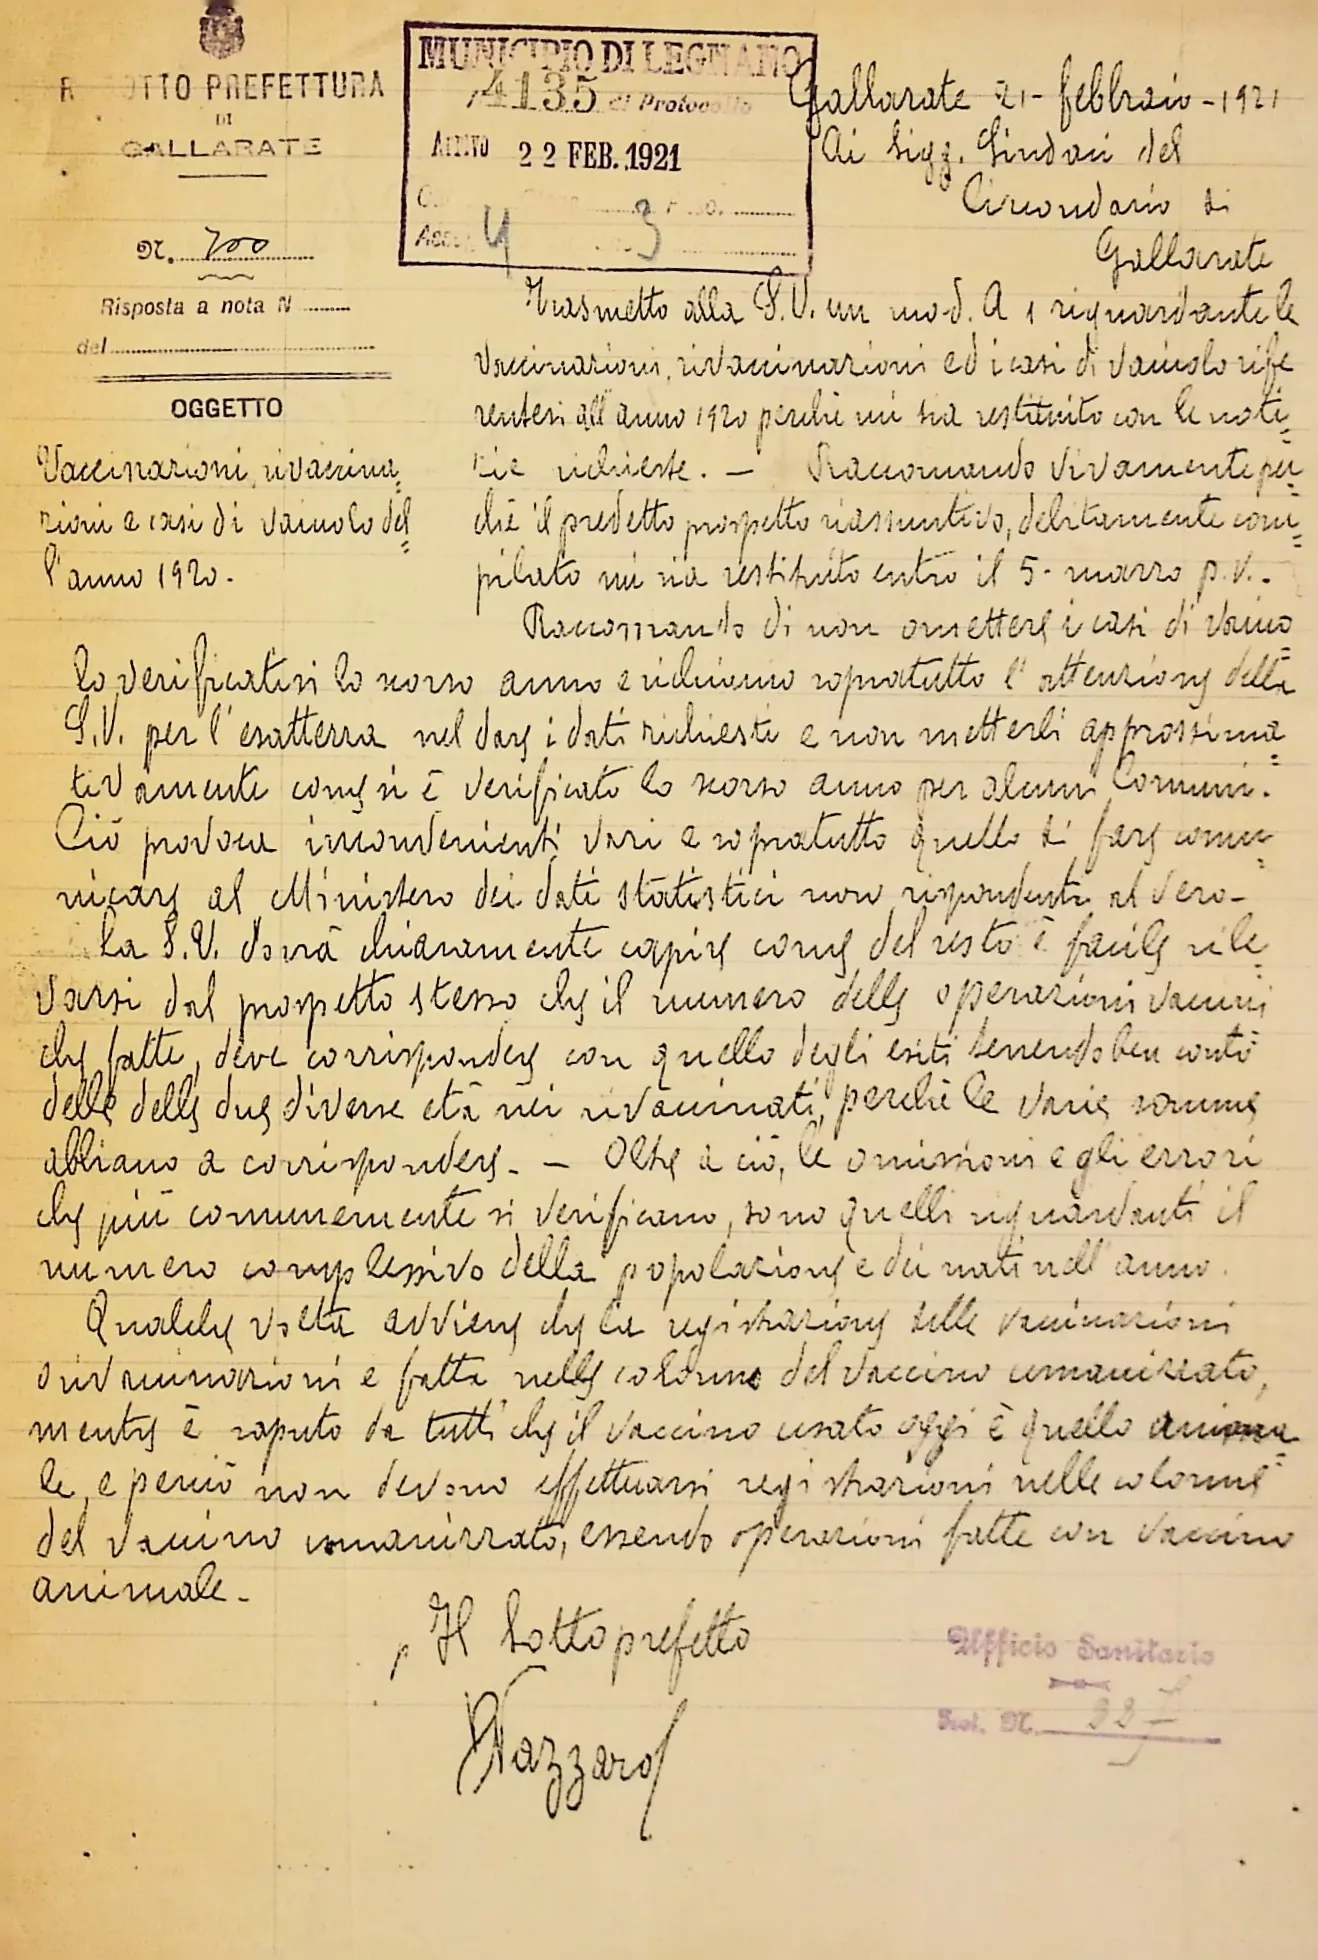 R. SOTTO PREFETTURA
DI
GALLARATE
N. 700
Risposta a nota N
del
OGGETTO
Vaccinazioni, rivaccina=
zioni e casi di vaiuolo del=
l'anno 1920.
MUNICIPIO DI LEGNANO
4135 di Protocollo
ARRIVO 22 FEB. 1921
4 3
Gallarate 21- febbraio -1921
Ai Sigg. Sindaci del
Circondario di
Gallarate
Trasmetto alla S.V. un mod. A 1 riguardante le
vaccinazioni, rivaccinazioni ed i casi di vaiuolo rife
rentesi all'anno 1920 perchè mi sia restituito con le noti=
zie richieste. — Raccomando vivamente per=
chè il predetto prospetto riassuntivo, debitamente com=
pilato mi sia restituito entro il 5- marzo p.v.-
Raccomando di non omettere i casi di vaiuo=
lo verificatisi lo scorso anno e richiamo sopratutto l'attenzione della
S.V. per l'esattezza nel dare i dati richiesti e non metterli approssima=
tivamente come si è verificato lo scorso anno per alcuni Comuni.
Ciò provoca inconvenienti vari e sopratutto quello di fare comu=
nicare al Ministero dei dati statistici non rispondenti al vero-
La S.V. dovrà chiaramente capire come del resto è facile rile=
varsi dal prospetto stesso che il numero delle operazioni vaccini
che fatte, deve corrispondere con quello degli esiti tenendo ben conto
delle delle due diverse età nei rivaccinati, perchè le varie somme
abbiano a corrispondere. — Oltre a ciò, le omissioni e gli errori
che più comunemente si verificano, sono quelli riguardanti il
numero complessivo della popolazione e dei nati nell'anno.
Qualche volta avviene che la registrazione delle vaccinazioni
o rivaccinazioni è fatta nelle colonne del vaccino umanizzato,
mentre è saputo da tutti che il vaccino usato oggi è quello anima=
le, e perciò non devono effettuarsi registrazioni nelle colonne
del vaccino umanizzato, essendo operazioni fatte con vaccino
animale.-
p Il Sottoprefetto
Nazzaro
Ufficio Sanitario
Prot. N.